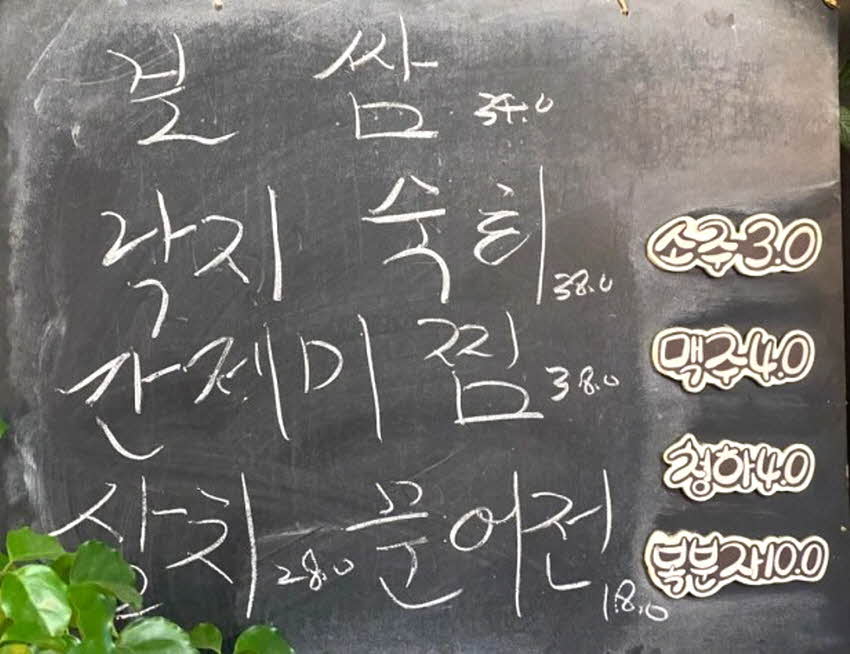 쌈 34.0
낙지 숙회 38.0
간제미찜 38.0
삼치 28.0 문어전 18.0
소주3.0
맥주4.0
청하4.0
복분자10.0